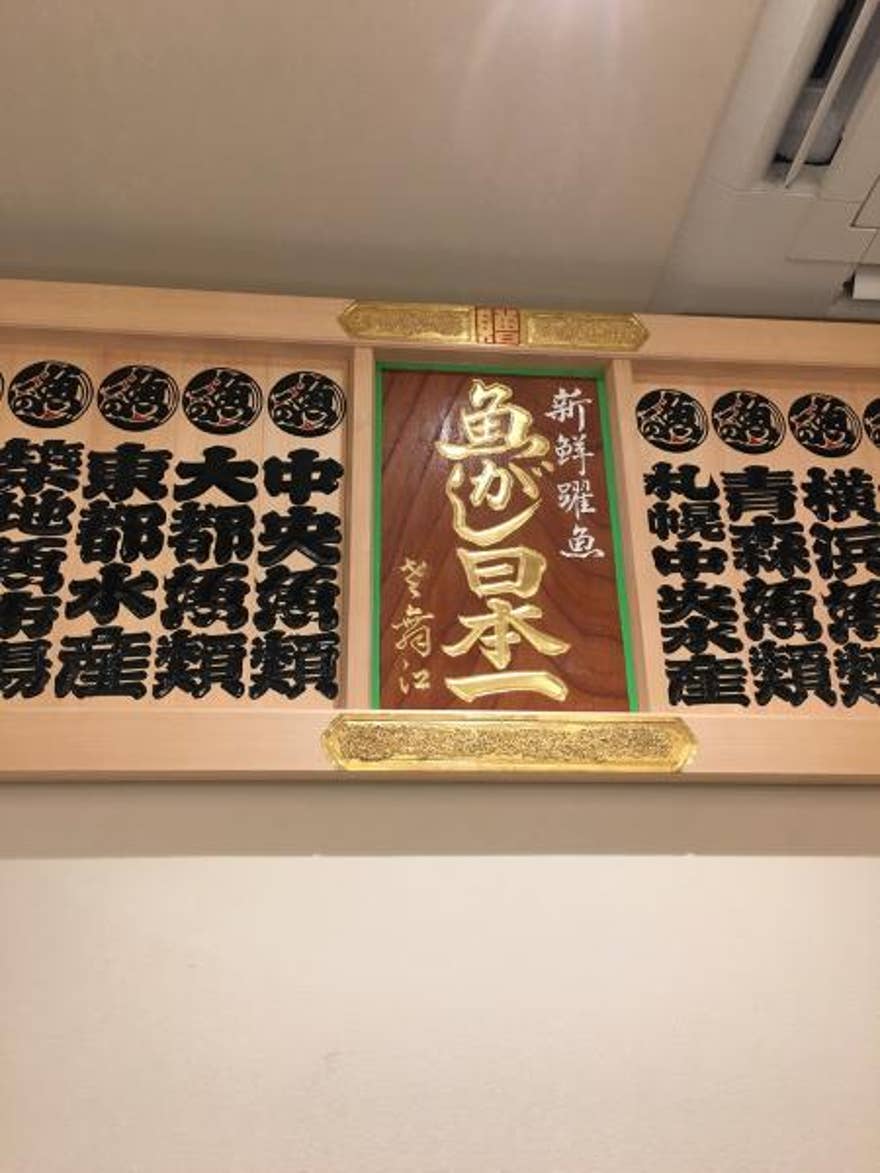 築地魚市場
東都水産
大都魚類
中央魚類
新鮮躍魚
魚がし日本一
札幌中央水産
青森魚類
横浜魚類